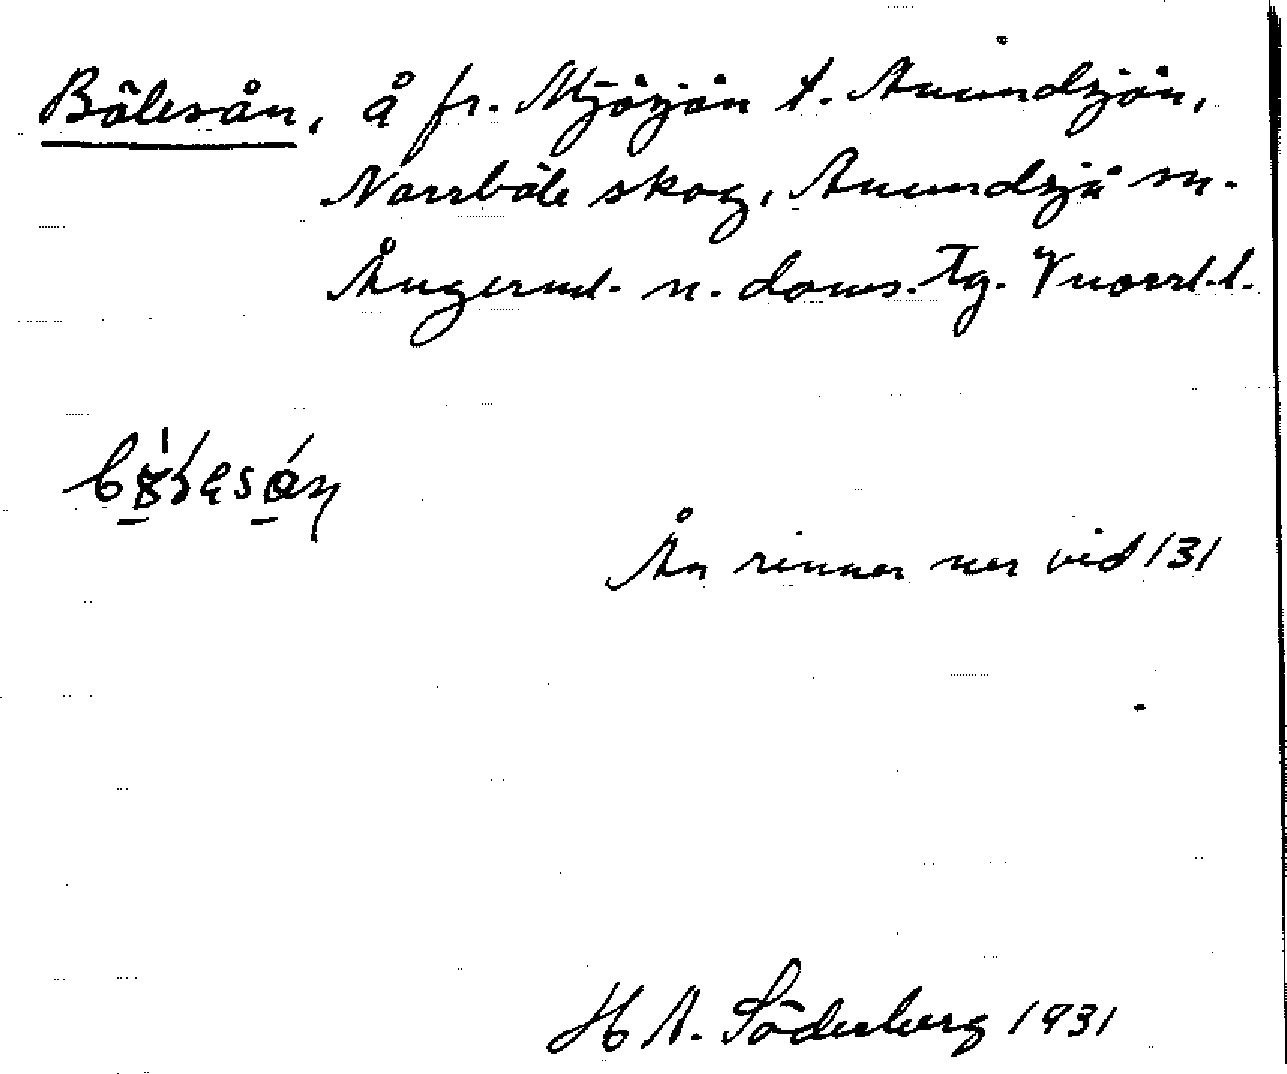 Bölesån, å fr. Mjösjön t. Anundsjön,
Norrböle skog, Anundsjö sn.
Ångerml. n. doms. Tg.
Ån rinner ner vid 131
H A. Söderberg 1931